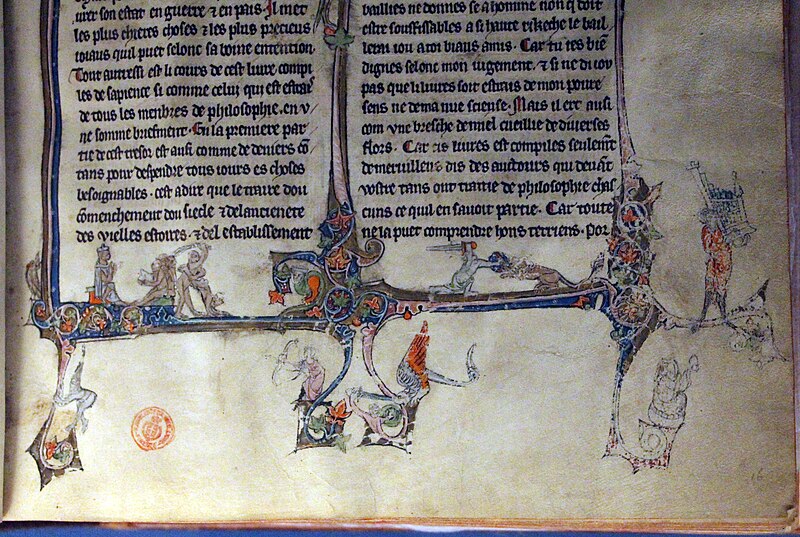 urer son estat en guerre ⁊ en pais. Il met
les plus chieres choses ⁊ les plus precieus
ioiaus quil puet selonc sa boine entention.
Tout autresi est li cours de cest liure compi
les de sapience si comme celui qui est estrais
de tous les menbres de philosophie. en v
ne somme briefment. En la premiere par
tie de cest tresor est ausi comme de deniers cō
tans pour despendre tous iours es choses
besoignables. cest a dire que le traite dou
cōmenchement dou siecle ⁊ de lancienete
des vielles estoires. ⁊ del establissement
baillies ne donnes se a homme non q̄ doit
estre souffissables a si haute rikeche le bail
lerai iou a toi biaus amis. Car tu ies biē
dignes selonc mon iugement. ⁊ si ne di ioy
pas que li liures soit estrais de mon poure
sens ne de ma nue sciense. Mais il ert ausi
com vne bresche de miel cueillie de diuerses
flors. Car cis liures est compiles seulemt
de merueilleus dis des auctours qui deuāt
vostre tans ont traitie de philosophie chas
cuns ce quil en sauoit partie. Car toute
ne la puet comprendre hons terriens. Por